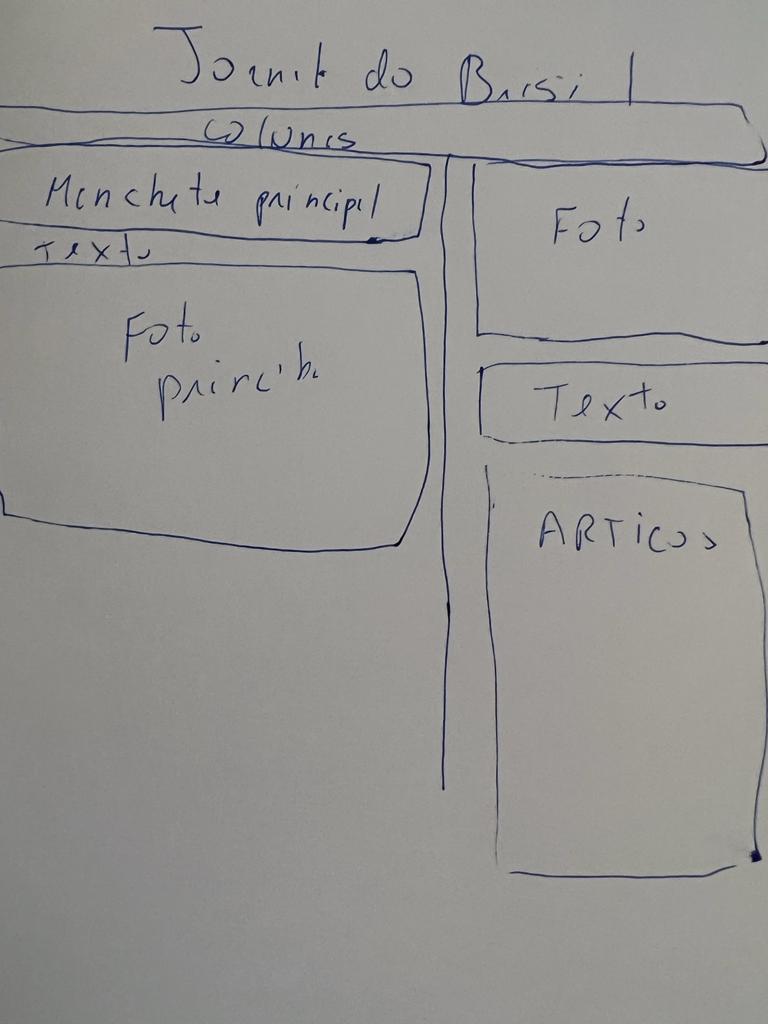 Jornal do Brasil
Colunas
Manchete principal
Texto
Foto
principal
Foto
Texto
ARTIGOS